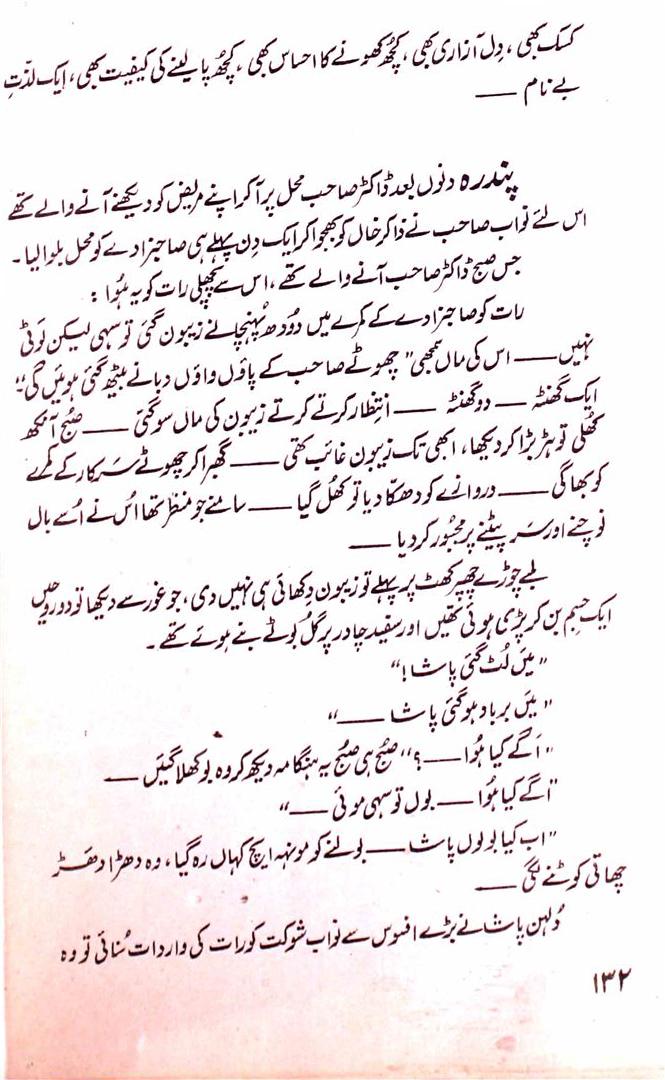 کسک بھی، دِل آزاری بھی، کُچھ کھونے کا احساس بھی، کُچھ پا لینے کی کیفیت بھی، ایک لذّتِ
بے نام ——
پندرہ دنوں بعد ڈاکٹر صاحب محل پر آ کر اپنے مریض کو دیکھنے آنے والے تھے
اس لئے نواب صاحب نے ذاکر خاں کو بھجوا کر ایک دِن پہلے ہی صاحبزادے کو محل بلوا لیا۔
جس صبح ڈاکٹر صاحب آنے والے تھے، اس سے پچھلی رات کو یہ ہُوا :
رات کو صاحبزادے کے کمرے میں دُودھ پہنچانے زیبون گئی تو سہی لیکن لَوٹی
نہیں —— اس کی ماں سمجھی "چھوٹے صاحب کے پاؤں واؤں دبانے بیٹھ گئی ہوئیں گی۔"
ایک گھنٹہ —— دو گھنٹہ —— انتظار کرتے کرتے زیبون کی ماں سو گئی —— صُبح آنکھ
کُھلی تو ہڑبڑا کر دیکھا، ابھی تک زیبون غائب تھی —— گھبرا کر چھوٹے سرکار کے کمرے
کو بھاگی —— دروازے کو دھکا دیا تو کُھل گیا —— سامنے جو منظر تھا اُس نے اُسے بال
نوچنے اور سر پیٹنے پر مجبُور کر دیا ——
لمبے چوڑے چھپر کھٹ پر پہلے تو زیبون دِکھائی ہی نہیں دی، جو غور سے دیکھا تو دو روحیں
ایک جسم بن کر پڑی ہوئی تھیں اور سفید چادر پر گُل بوٹے بنے ہوئے تھے۔
"میں لُٹ گئی پاشا!"
"میں برباد ہو گئی پاشا ——"
"اَگے کیا ہُوا ——؟" صُبح ہی صُبح یہ ہنگامہ دیکھ کر وہ بوکھلا گئیں ——
"اَگے کیا ہُوا —— بول تو سہی موئی ——"
"اب کیا بولوں پاشا —— بولنے کو مونہہ ایچ کہاں رہ گیا، وہ دھڑا دھڑ
چھاتی کوٹنے لگی ——
دُلہن پاشا نے بڑے افسوس سے نواب شوکت کو رات کی واردات سُنائی تو وہ
۱۳۲